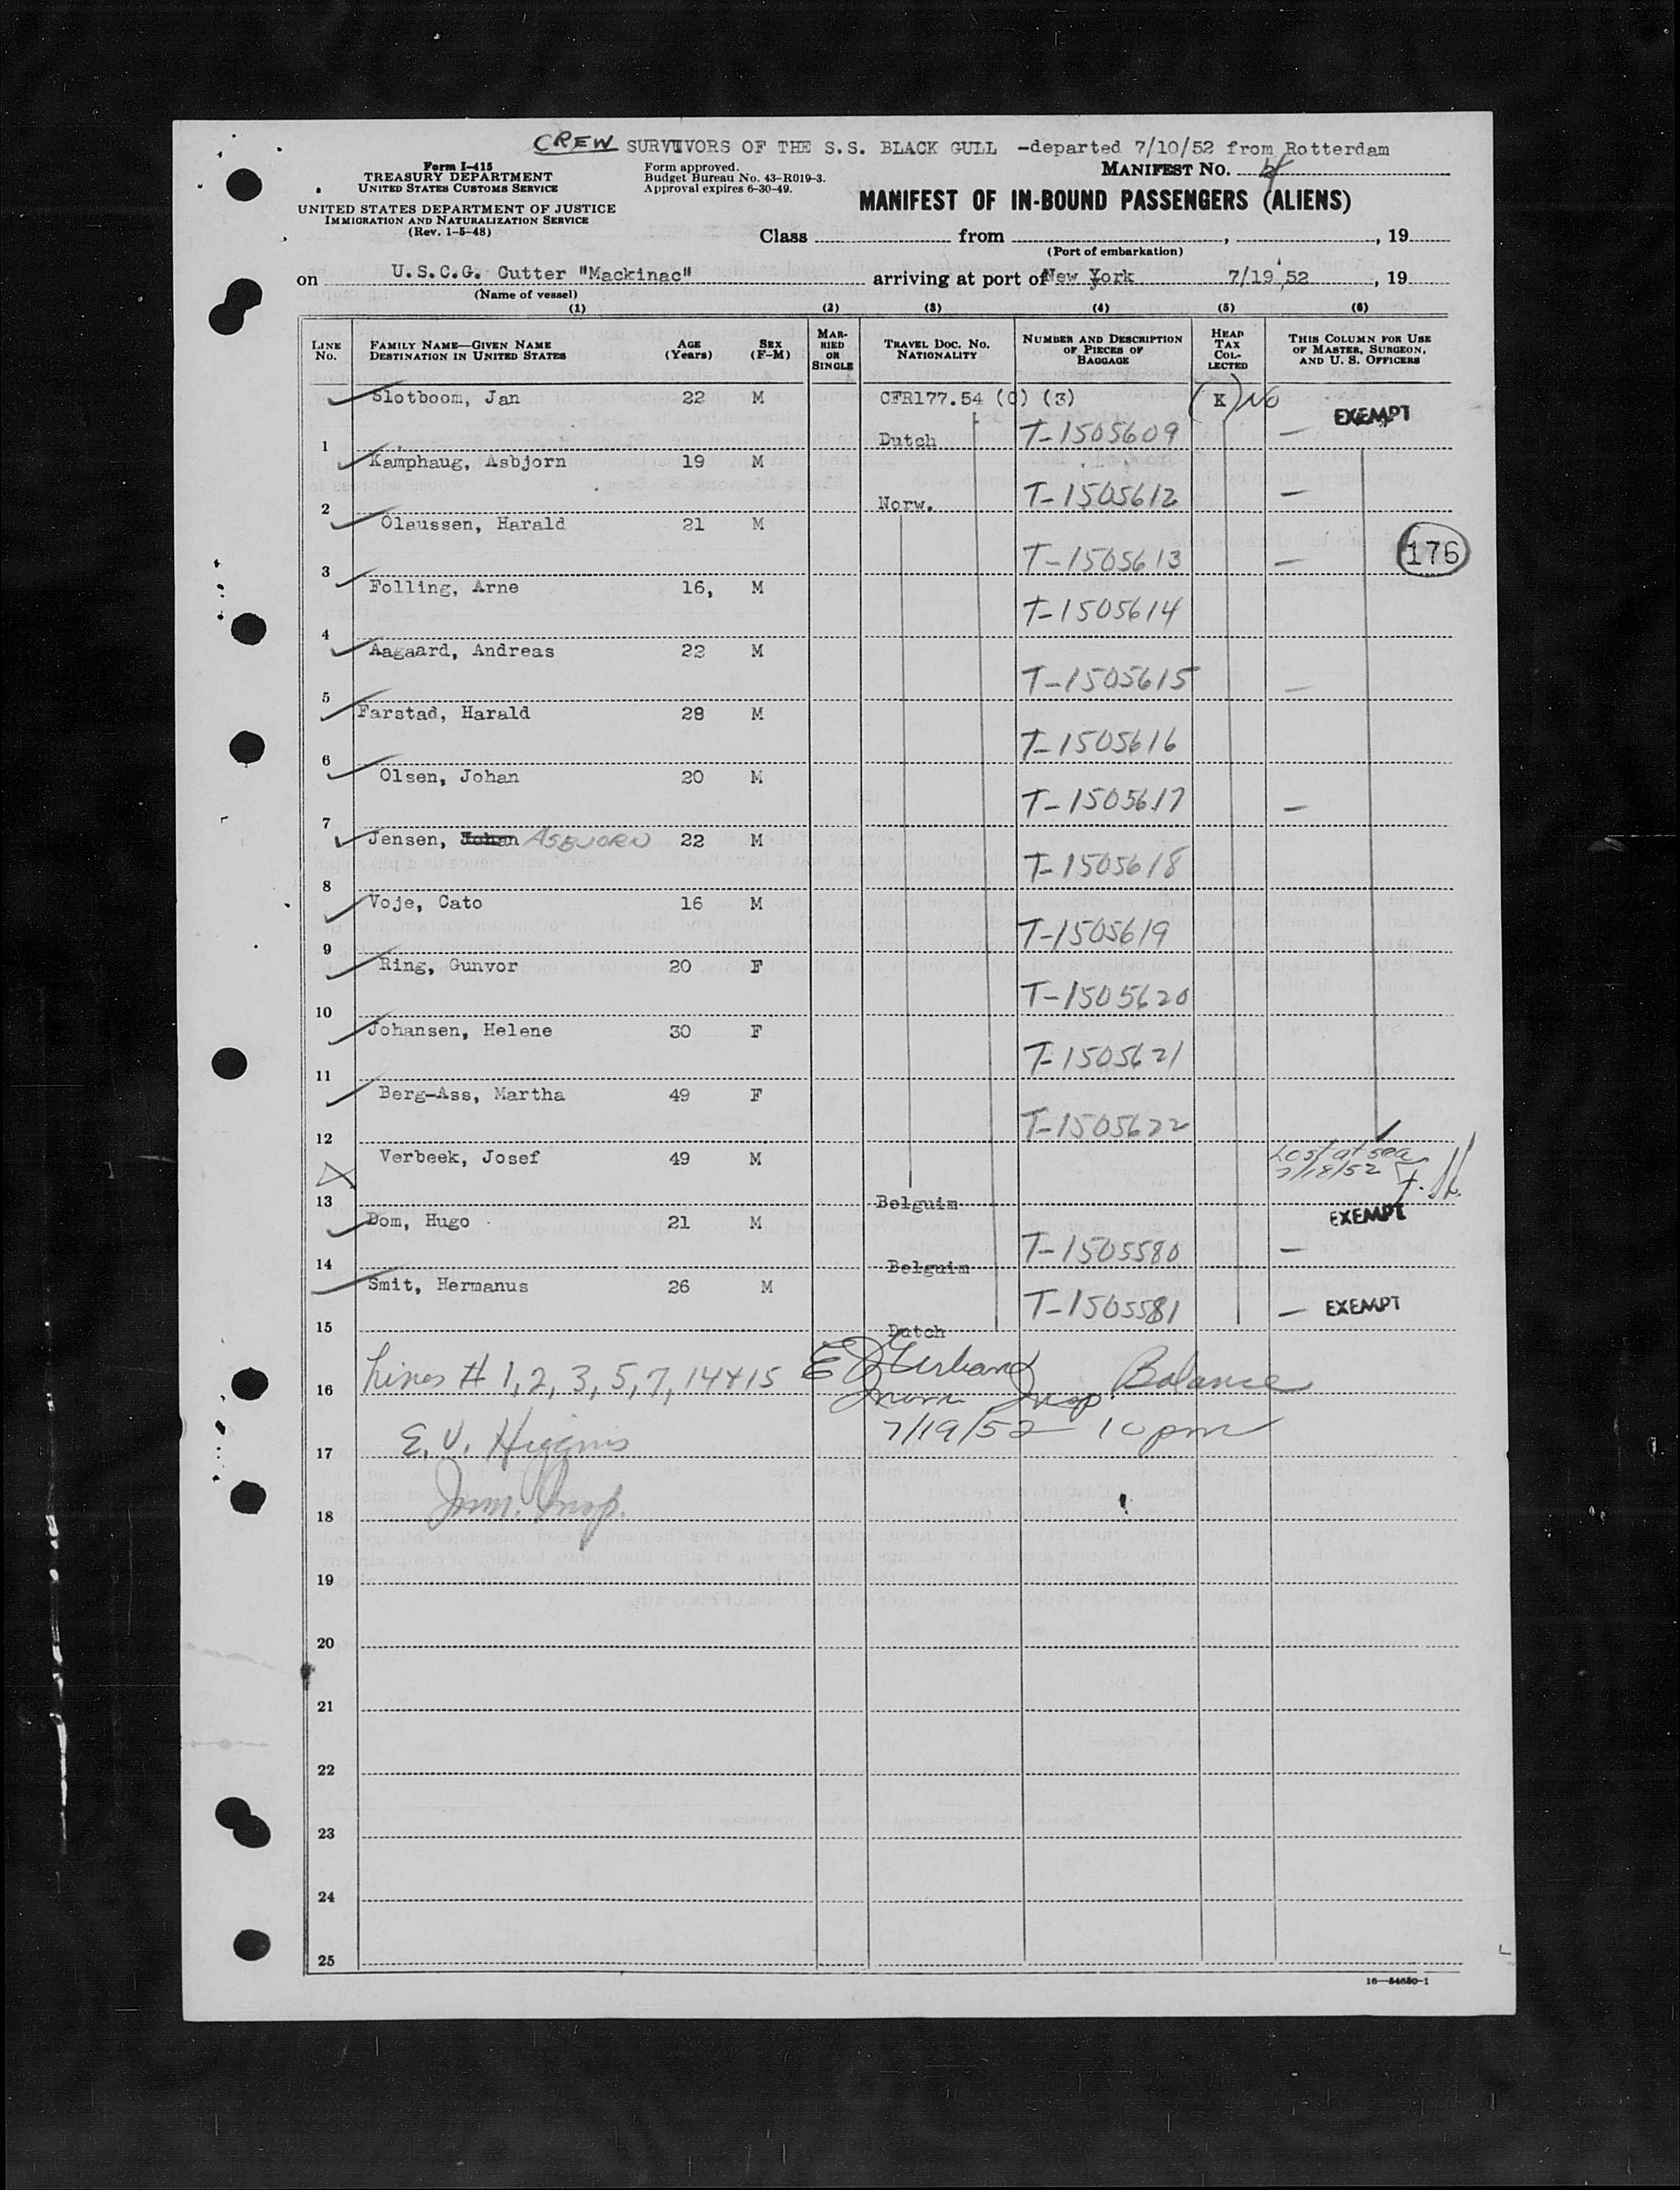 CREW SURVIVORS OF THE S.S. BLACK GULL -departed 7/10/52 from Rotterdam
Form I-415
TREASURY DEPARTMENT
UNITED STATES CUSTOMS SERVICE
UNITED STATES DEPARTMENT OF JUSTICE
IMMIGRATION AND NATURALIZATION SERVICE
(Rev. 1-5-48)
Form approved.
Budget Bureau No. 43-R019-3.
Approval expires 6-30-49.
MANIFEST NO.
MANIFEST OF IN-BOUND PASSENGERS (ALIENS)
Class from , , 19
(Port of embarkation)
on U.S.C.G. Cutter "Mackinac" arriving at port of New York 7/19,52 , 19
(Name of vessel)
(1) (2) (3) (4) (5) (6)
LINE NO.
FAMILY NAME—GIVEN NAME
DESTINATION IN UNITED STATES
AGE (Years)
SEX (F-M)
MARRIED OR SINGLE
TRAVEL DOC. NO.
NATIONALITY
NUMBER AND DESCRIPTION OF PIECES OF BAGGAGE
HEAD TAX COLLECTED
THIS COLUMN FOR USE OF MASTER, SURGEON, AND U. S. OFFICERS
Slotboom, Jan 22 M CFR177.54 (C) (3) (K) NO EXEMPT
1 Dutch T-1505609 —
Kamphaug, Asbjorn 19 M
2 Norw. T-1505612 —
Olaussen, Harald 21 M 176
3 T-1505613 —
Folling, Arne 16, M
4 T-1505614
Aagaard, Andreas 22 M
5 T-1505615 —
Farstad, Harald 28 M
6 T-1505616
Olsen, Johan 20 M
7 T-1505617 —
Jensen, Johan ASBJORN 22 M
8 T-1505618
Voje, Cato 16 M
9 T-1505619
Ring, Gunvor 20 F
10 T-1505620
Johansen, Helene 30 F
11 T-1505621
Berg-Ass, Martha 49 F
12 T-1505622
Verbeek, Josef 49 M Lost at sea
7/18/52
13 Belguim
Dom, Hugo 21 M EXEMPT
14 Belguim T-1505580 —
Smit, Hermanus 26 M
15 Dutch T-1505581 — EXEMPT
16 Lines # 1, 2, 3, 5, 7, 14 & 15 Balance
Imm Insp.
17 E. V. Higgins 7/19/52 10 pm
18 Imm. Insp.
19
20
21
22
23
24
25
16—54650-1